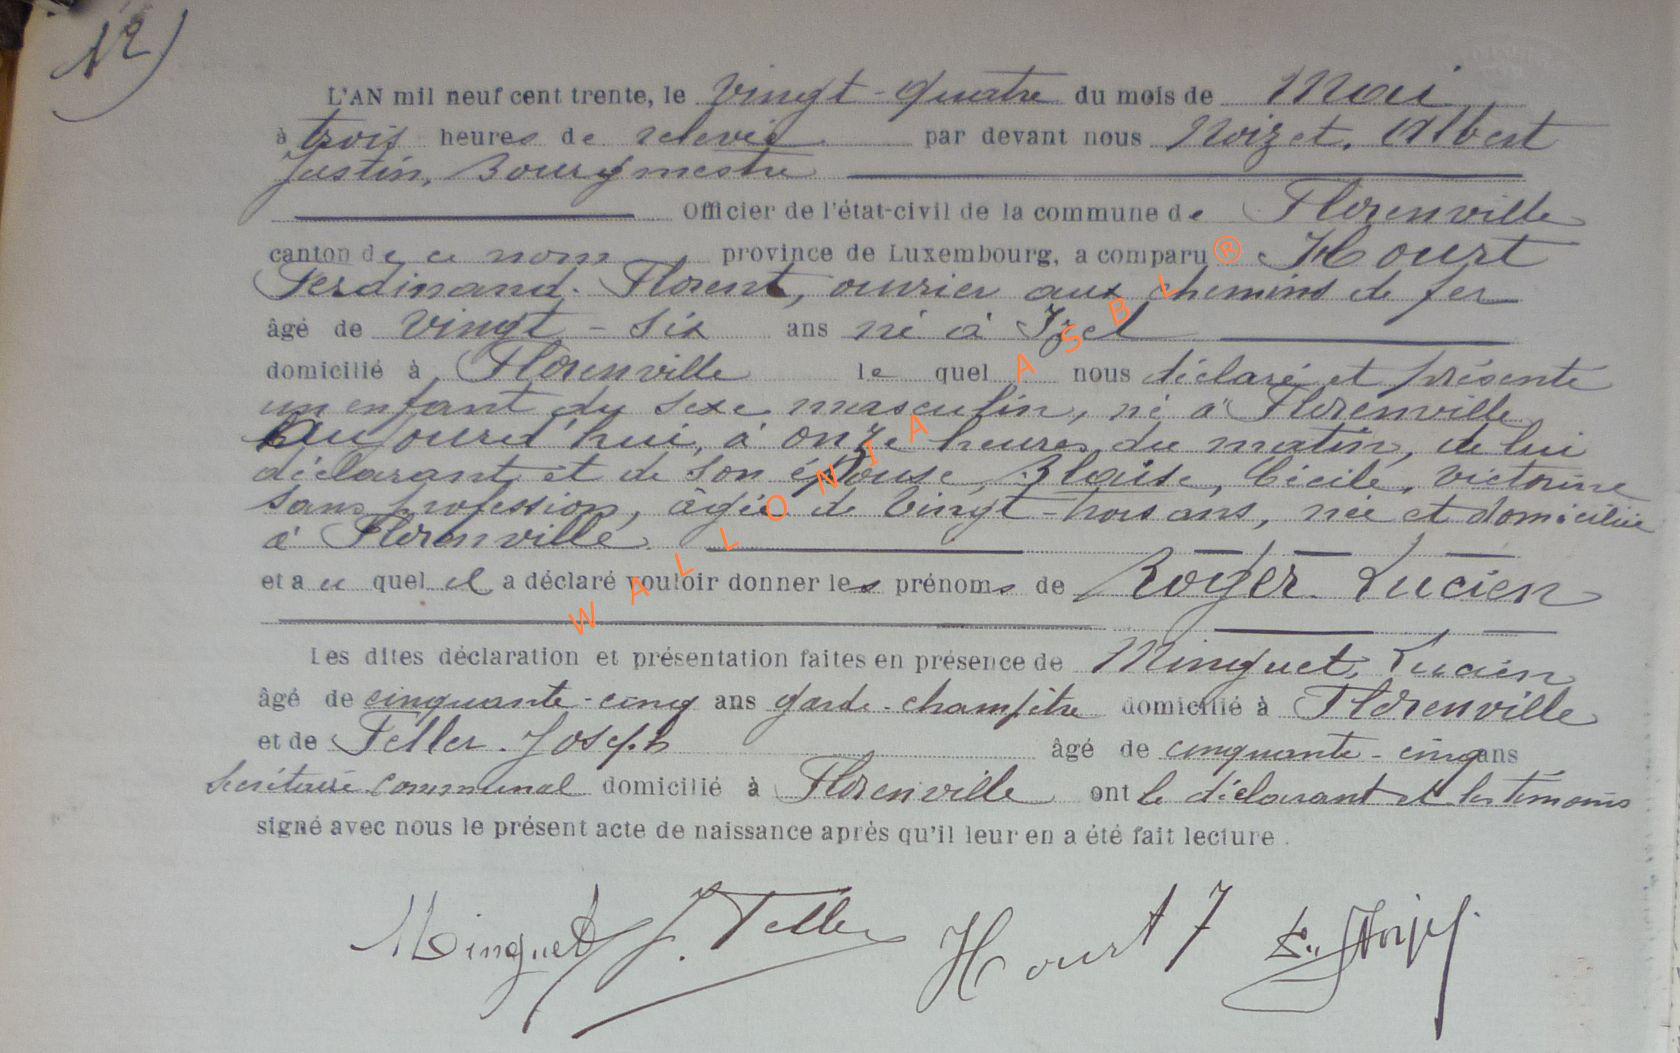 12)
L'AN mil neuf cent trente, le vingt-quatre du mois de Mai
à trois heures de relevée par devant nous Noizet, Albert
Justin, Bourgmestre
Officier de l'état-civil de la commune de Florenville
canton de ce nom province de Luxembourg, a comparu Hourt
Ferdinand-Florent, ouvrier aux chemins de fer
âgé de vingt-six ans né à Izel
domicilié à Florenville lequel nous déclaré et présenté
un enfant du sexe masculin, né à Florenville
aujourd'hui, à onze heures du matin, de lui
déclarant et de son épouse, Blaise, Cécile, Victorine
sans profession, âgée de vingt-trois ans, née et domiciliée
à Florenville
et a u quel il a déclaré vouloir donner les prénoms de Roger-Lucien
Les dites déclaration et présentation faites en présence de Minguet, Lucien
âgé de cinquante-cinq ans garde-champêtre domicilié à Florenville
et de Feller-Joseph âgé de cinquante-cinq ans
secrétaire communal domicilié à Florenville ont le déclarant et les témoins
signé avec nous le présent acte de naissance après qu'il leur en a été fait lecture.
Minguet J. Feller Hourt F
WALLONIA ASBL ®